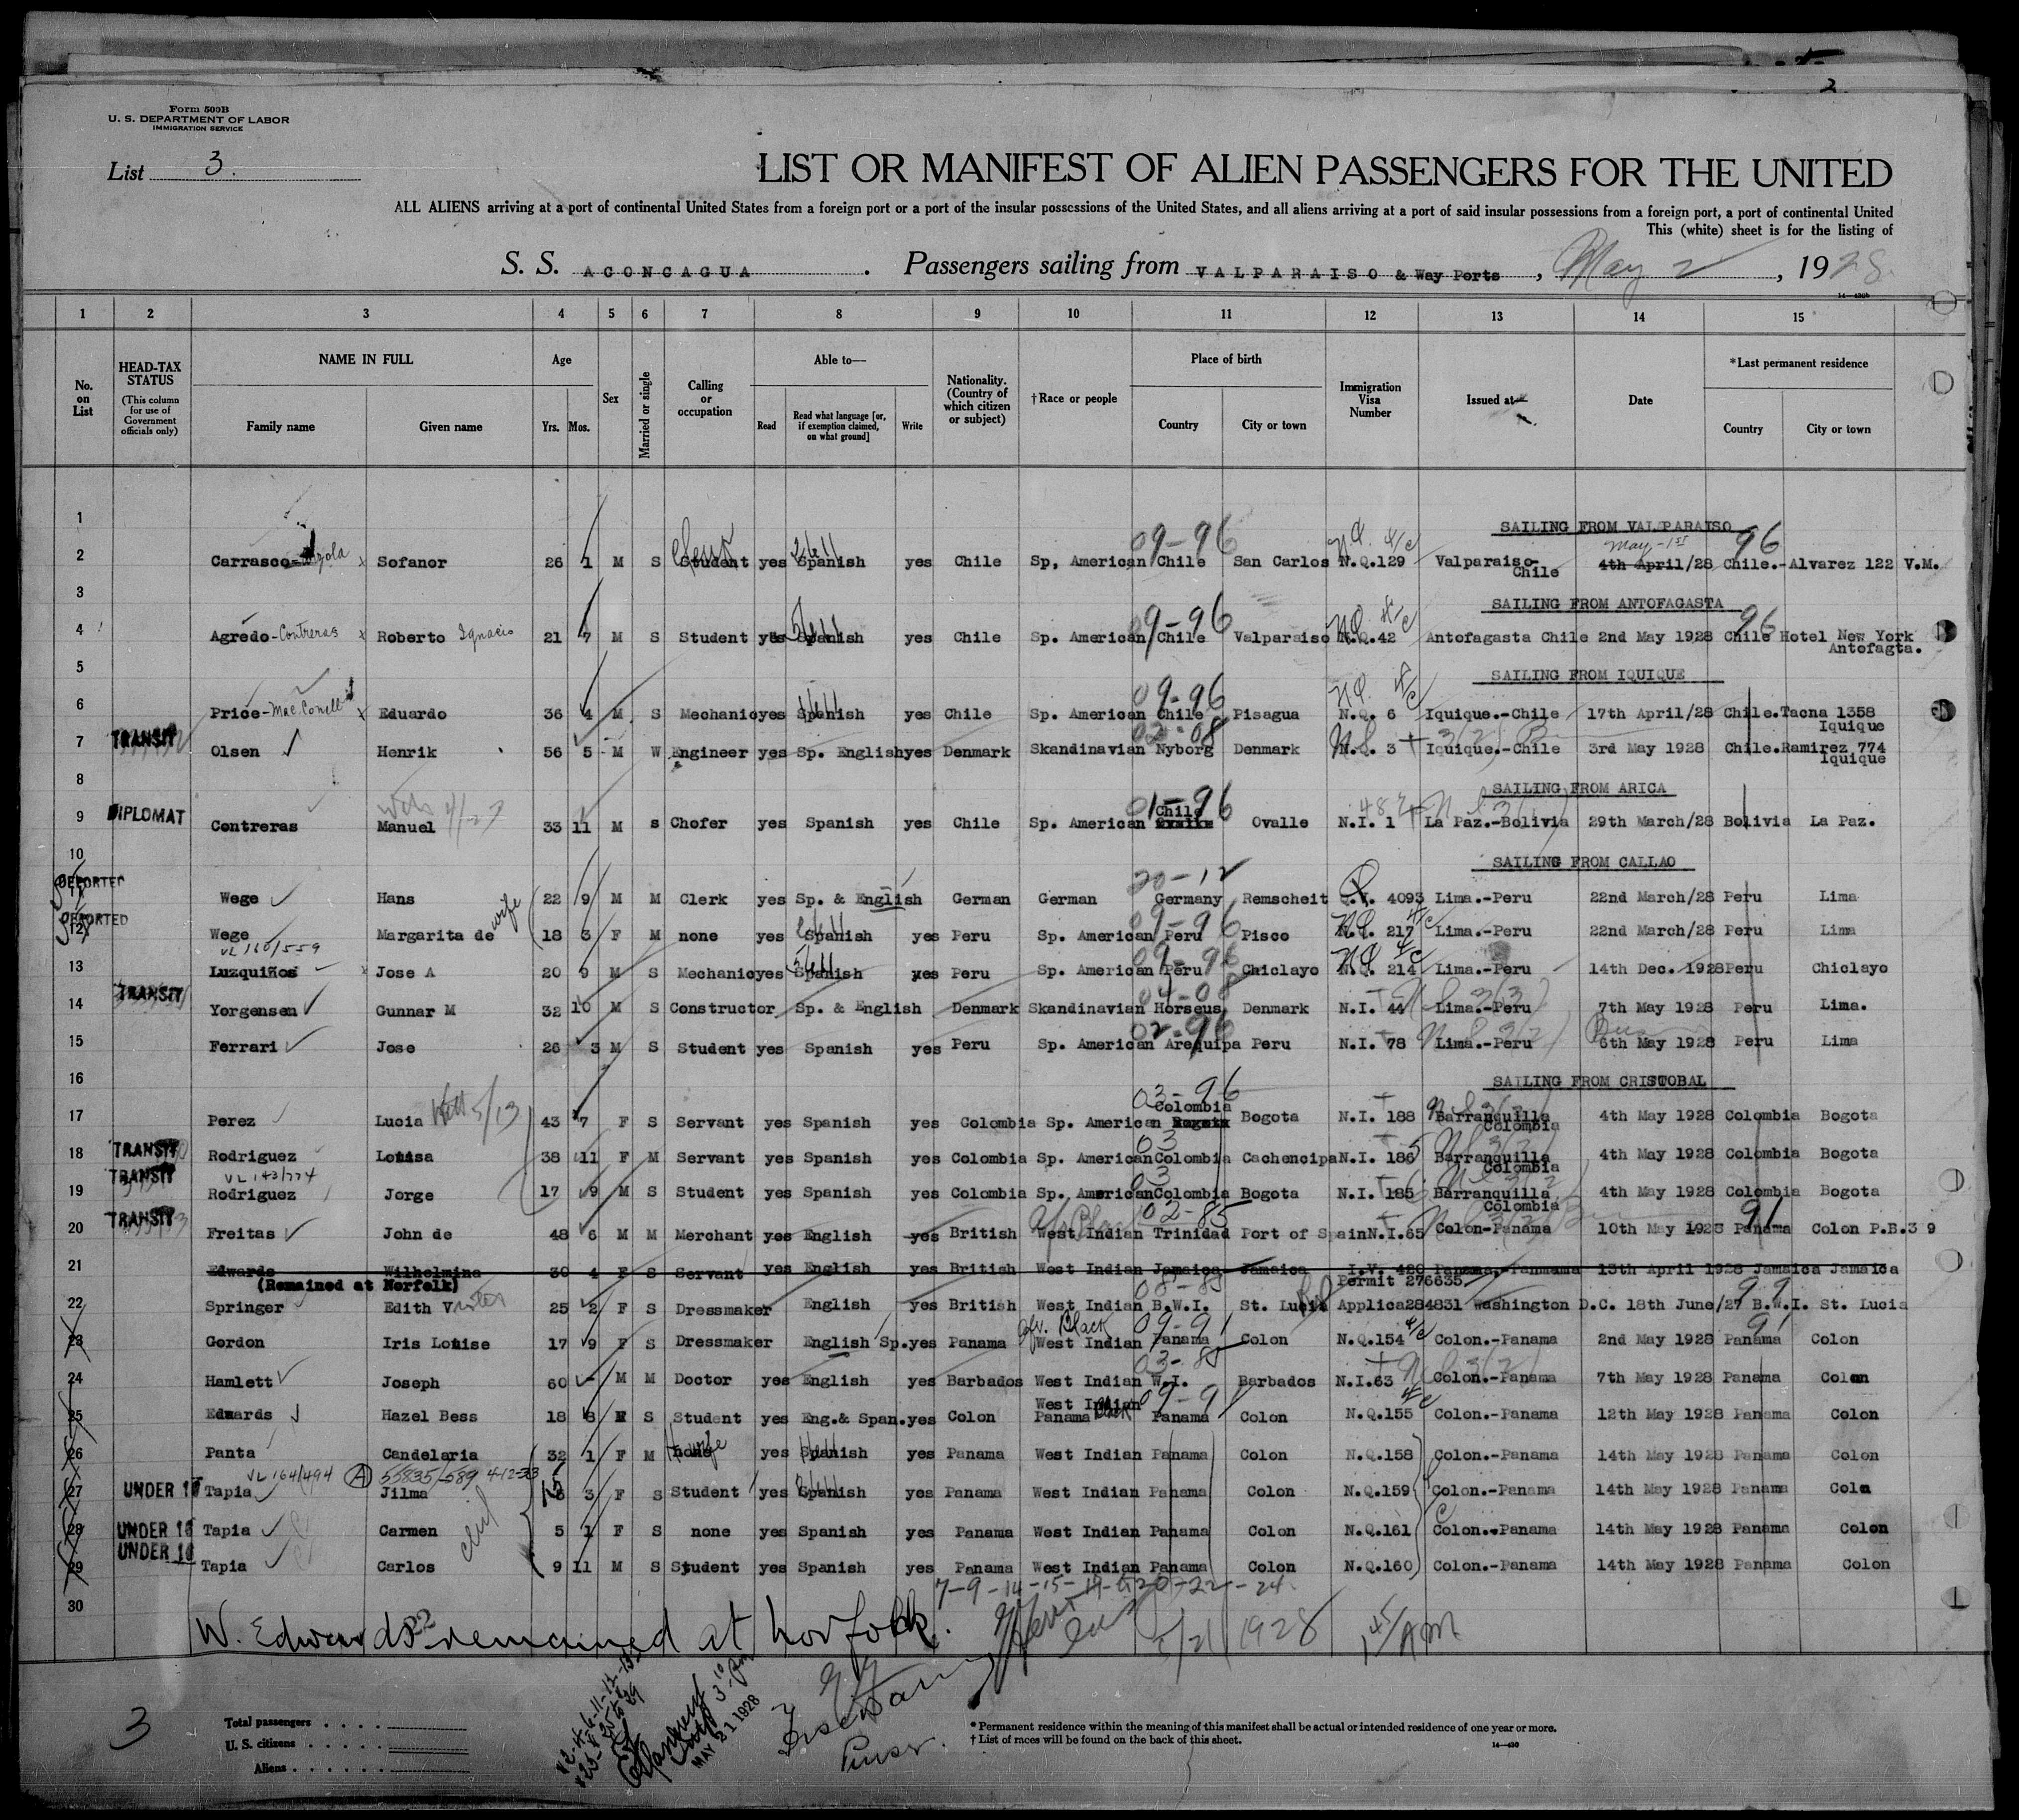 2
Form 500B
U. S. DEPARTMENT OF LABOR
IMMIGRATION SERVICE
List 3.
LIST OR MANIFEST OF ALIEN PASSENGERS FOR THE UNITED
ALL ALIENS arriving at a port of continental United States from a foreign port or a port of the insular possessions of the United States, and all aliens arriving at a port of said insular possessions from a foreign port, a port of continental United
This (white) sheet is for the listing of
S. S. ACONCAGUA. Passengers sailing from VALPARAISO & Way Ports, May 2, 1928
14—430b
1 2 3 4 5 6 7 8 9 10 11 12 13 14 15
No. on List
HEAD-TAX STATUS (This column for use of Government officials only)
NAME IN FULL Family name Given name
Age Yrs. Mos.
Sex
Married or single
Calling or occupation
Able to— Read Read what language [or, if exemption claimed, on what ground] Write
Nationality. (Country of which citizen or subject)
†Race or people
Place of birth Country City or town
Immigration Visa Number
Issued at—
Date
*Last permanent residence Country City or town
1 SAILING FROM VALPARAISO
2 Carrasco Sofanor 26 1 M S Student yes Spanish yes Chile Sp. American Chile 09-96 San Carlos N.Q.129 Valparaiso-Chile May-1st 4th April/28 Chile.-Alvarez 122 V.M. 96
3 SAILING FROM ANTOFAGASTA
4 Agredo-Contreras Roberto Ignacio 21 7 M S Student yes Spanish yes Chile Sp. American Chile 09-96 Valparaiso N.Q.42 Antofagasta Chile 2nd May 1928 Chile Hotel New York Antofagta. 96
5 SAILING FROM IQUIQUE
6 Price-Mac.Conell Eduardo 36 4 M S Mechanic yes Spanish yes Chile Sp. American Chile 09-96 Pisagua N.Q. 6 Iquique.-Chile 17th April/28 Chile.Tacna 1358 Iquique
7 TRANSIT Olsen Henrik 56 5 M W Engineer yes Sp. English yes Denmark Skandinavian Nyborg 02-08 Denmark N.I. 3 Iquique.-Chile 3rd May 1928 Chile.Ramirez 774 Iquique
8 SAILING FROM ARICA
9 DIPLOMAT Contreras Manuel 33 11 M s Chofer yes Spanish yes Chile Sp. American Chile 01-96 Ovalle N.I. 1 La Paz.-Bolivia 29th March/28 Bolivia La Paz.
10 SAILING FROM CALLAO
DEPORTED Wege Hans 22 9 M M Clerk yes Sp. & English German German Germany 20-12 Remscheit 4093 Lima.-Peru 22nd March/28 Peru Lima
DEPORTED 12 Wege Margarita de wife 18 3 F M none yes Spanish yes Peru Sp. American Peru 09-96 Pisco 217 Lima.-Peru 22nd March/28 Peru Lima
VL 160/559
13 Luzquiños Jose A 20 9 M S Mechanic yes Spanish yes Peru Sp. American Peru 09-96 Chiclayo N.Q. 214 Lima.-Peru 14th Dec. 1928 Peru Chiclayo
14 TRANSIT Yorgensen Gunnar M 32 10 M S Constructor Sp. & English Denmark Skandinavian Horseus 04-08 Denmark N.I. 44 Lima.-Peru 7th May 1928 Peru Lima.
15 Ferrari Jose 26 3 M S Student yes Spanish yes Peru Sp. American Arequipa 02-96 Peru N.I. 78 Lima.-Peru 6th May 1928 Peru Lima
16 SAILING FROM CRISTOBAL
17 Perez Lucia 5/13 43 7 F S Servant yes Spanish yes Colombia Sp. American Colombia 03-96 Bogota N.I. 188 Barranquilla Colombia 4th May 1928 Colombia Bogota
18 TRANSIT Rodriguez Louisa 38 11 F M Servant yes Spanish yes Colombia Sp. American Colombia 03 Cachencipa N.I. 186 Barranquilla Colombia 4th May 1928 Colombia Bogota
TRANSIT VL 143/774
19 Rodriguez Jorge 17 9 M S Student yes Spanish yes Colombia Sp. American Colombia 03 Bogota N.I. 185 Barranquilla Colombia 4th May 1928 Colombia Bogota
20 TRANSIT Freitas John de 48 6 M M Merchant yes English yes British West Indian Trinidad 02-85 Port of Spain N.I.65 Colon-Panama 10th May 1928 Panama Colon P.B.3 9 91
21 Edwards Wilhelmina 30 4 F S Servant yes English yes British West Indian Jamaica Jamaica I.V. 420 Panama,-Panmama 13th April 1928 Jamaica Jamaica
(Remained at Norfolk) Permit 276635
22 Springer Edith V 25 2 F S Dressmaker English yes British West Indian B.W.I. 08-85 St. Lucia Applica284831 Washington D.C. 18th June/27 B.W.I. St. Lucia 99
23 Gordon Iris Louise 17 9 F S Dressmaker English Sp. yes Panama West Indian Black Panama 09-91 Colon N.Q.154 Colon.-Panama 2nd May 1928 Panama Colon 91
24 Hamlett Joseph 60 - M M Doctor yes English yes Barbados West Indian W.I. 03-85 Barbados N.I.63 Colon.-Panama 7th May 1928 Panama Colon
25 Edwards Hazel Bess 18 8 F S Student yes Eng.& Span. yes Colon West Indian Panama Black Panama 09-91 Colon N.Q.155 Colon.-Panama 12th May 1928 Panama Colon
26 Panta Candelaria 32 1 F M H wife yes Spanish yes Panama West Indian Panama Colon N.Q.158 Colon.-Panama 14th May 1928 Panama Colon
VL 164/494 (A) 55835/589 4-12-33
27 UNDER 16 Tapia Jilma 3 F S Student yes Spanish yes Panama West Indian Panama Colon N.Q.159 Colon.-Panama 14th May 1928 Panama Coln
28 UNDER 16 Tapia Carmen 5 1 F S none yes Spanish yes Panama West Indian Panama Colon N.Q.161 Colon.-Panama 14th May 1928 Panama Colon
29 UNDER 16 Tapia Carlos 9 11 M S Student yes Spanish yes Panama West Indian Panama Colon N.Q.160 Colon.-Panama 14th May 1928 Panama Colon
7-9-14-15- -20-22-24
30
W. Edwards remained at Norfolk. 5/21 1928 1 45/AM
3
Total passengers
U. S. citizens
Aliens
MAY 21 1928
Purser.
* Permanent residence within the meaning of this manifest shall be actual or intended residence of one year or more.
† List of races will be found on the back of this sheet.
14—430